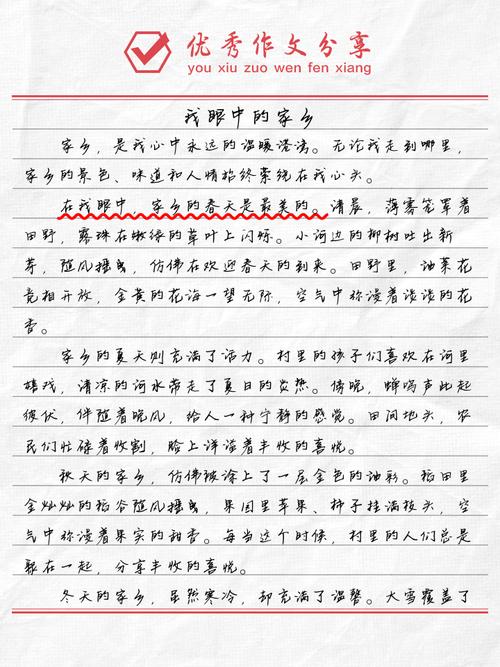 优秀作文分享
you xiu zuo wen fen xiang
我眼中的家乡
家乡，是我心中永远的温暖港湾。无论我走到哪里，
家乡的景色、味道和人情始终萦绕在我心头。
在我眼中，家乡的春天是最美的。清晨，薄雾笼罩着
田野，露珠在嫩绿的草叶上闪烁。小河边的柳树吐出新
芽，随风摇曳，仿佛在欢迎春天的到来。田野里，油菜花
竞相开放，金黄的花海一望无际，空气中弥漫着淡淡的花
香。
家乡的夏天则充满了活力。村里的孩子们喜欢在河里
嬉戏，清凉的河水带走了夏日的炎热。傍晚，蝉鸣声此起
彼伏，伴随着晚风，给人一种宁静的感觉。田间地头，农
民们忙碌着收割，脸上洋溢着丰收的喜悦。
秋天的家乡，仿佛被涂上了一层金色的油彩。稻田里
金灿灿的稻谷随风摇曳，果园里苹果、柿子挂满枝头，空
气中弥漫着果实的甜香。每当这个时候，村里的人们总是
聚在一起，分享丰收的喜悦。
冬天的家乡，虽然寒冷，却充满了温馨。大雪覆盖了